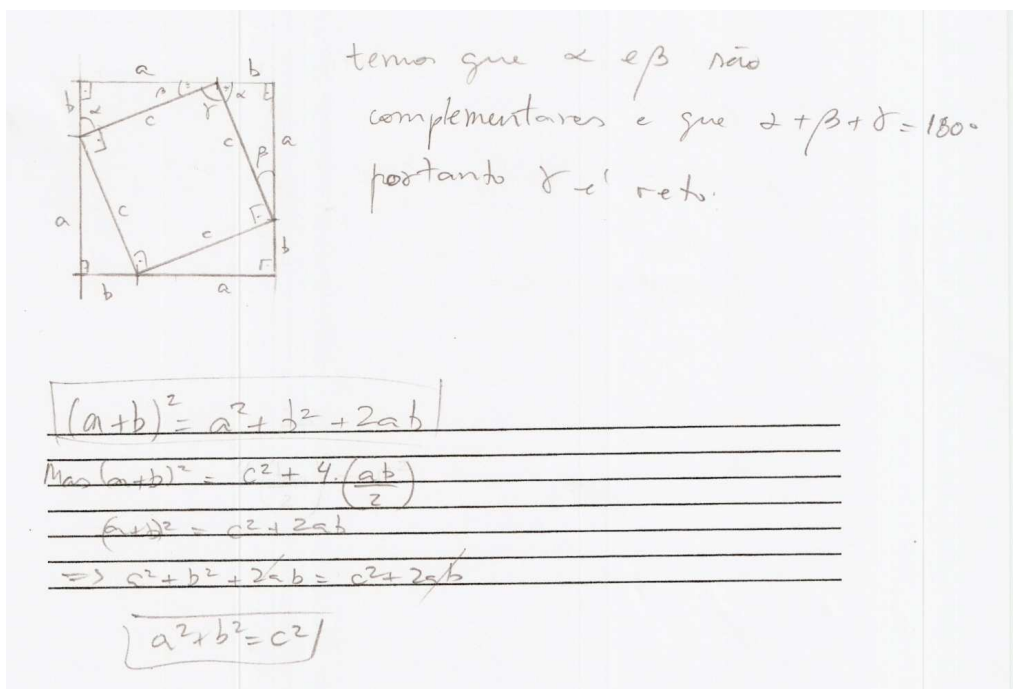 a b
b α β γ α
c c β a
a c c b
b a
temos que α e β são
complementares e que α + β + γ = 180°
portanto γ é reto.
(a+b)² = a² + b² + 2ab
Mas (a+b)² = c² + 4.(ab/2)
(a+b)² = c² + 2ab
=> a² + b² + 2ab = c² + 2ab
a² + b² = c²